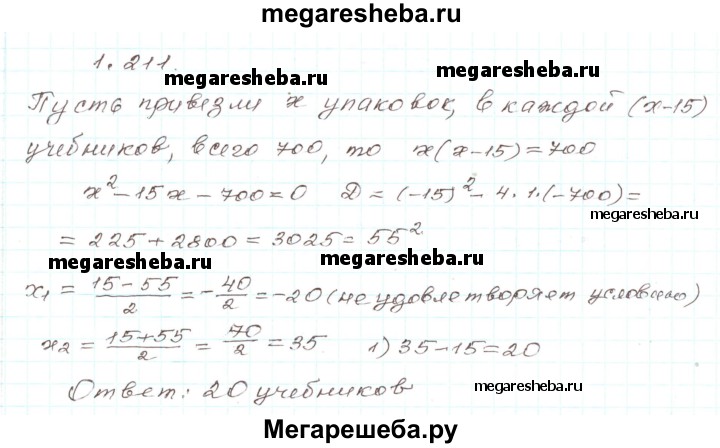 megaresheba.ru
1.211.
megaresheba.ru
Пусть привезли x упаковок, в каждой (x-15)
учебников, всего 700, то x(x-15)=700
x²-15x-700=0 D=(-15)²-4·1·(-700)=
megaresheba.ru
=225+2800=3025=55²
megaresheba.ru megaresheba.ru
x₁=(15-55)/2=-40/2=-20(не удовлетворяет условию)
x₂=(15+55)/2=70/2=35 1)35-15=20
Ответ: 20 учебников
megaresheba.ru
Мегарешеба.ру